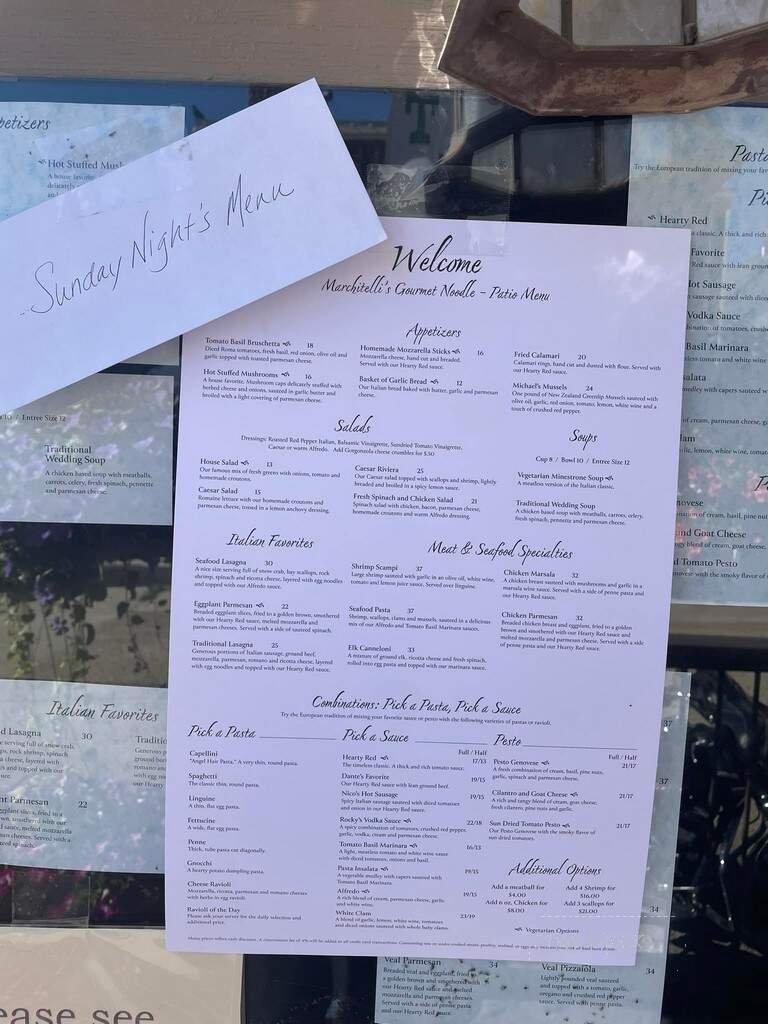 petizers
Hot Stuffed Mush
A house favorite
delicately
Sunday Night's Menu
Welcome
Marchitelli's Gourmet Noodle – Patio Menu
Appetizers
Tomato Basil Bruschetta 18
Diced Roma tomatoes, fresh basil, red onion, olive oil and
garlic topped with toasted parmesan cheese.
Hot Stuffed Mushrooms 16
A house favorite. Mushroom caps delicately stuffed with
herbed cheese and onions, sauteed in garlic butter and
broiled with a light covering of parmesan cheese.
Homemade Mozzarella Sticks 16
Mozzarella cheese, hand cut and breaded.
Served with our Hearty Red sauce.
Basket of Garlic Bread 12
Our Italian bread baked with butter, garlic and parmesan
cheese.
Fried Calamari 20
Calamari rings, hand cut and dusted with flour. Served with
our Hearty Red sauce.
Michael's Mussels 24
One pound of New Zealand Greenlip Mussels sauteed with
olive oil, garlic, red onion, tomato, lemon, white wine and a
touch of crushed red pepper.
Salads
Dressings: Roasted Red Pepper Italian, Balsamic Vinaigrette, Sundried Tomato Vinaigrette,
Caesar or warm Alfredo. Add Gorgonzola cheese crumbles for $.50
House Salad 13
Our famous mix of fresh greens with onions, tomato and
homemade croutons.
Caesar Salad 15
Romaine lettuce with our homemade croutons and
parmesan cheese, tossed in a lemon anchovy dressing.
Caesar Riviera 25
Our Caesar salad topped with scallops and shrimp, lightly
breaded and broiled in a spicy lemon sauce.
Fresh Spinach and Chicken Salad 21
Spinach salad with chicken, bacon, parmesan cheese,
homemade croutons and warm Alfredo dressing.
Soups
Cup 8 / Bowl 10 / Entree Size 12
Vegetarian Minestrone Soup
A meatless version of the Italian classic.
Traditional Wedding Soup
A chicken based soup with meatballs, carrots, celery,
fresh spinach, pennette and parmesan cheese.
Italian Favorites
Seafood Lasagna 30
A nice size serving full of snow crab, bay scallops, rock
shrimp, spinach and ricotta cheese, layered with egg noodles
and topped with our Alfredo sauce.
Eggplant Parmesan 22
Breaded eggplant slices, fried to a golden brown, smothered
with our Hearty Red sauce, melted mozzarella and
parmesan cheeses. Served with a side of sauteed spinach.
Traditional Lasagna 25
Generous portions of Italian sausage, ground beef,
mozzarella, parmesan, romano and ricotta cheese, layered
with egg noodles and topped with our Hearty Red sauce.
Meat & Seafood Specialties
Shrimp Scampi 37
Large shrimp sauteed with garlic in an olive oil, white wine,
tomato and lemon juice sauce. Served over linguine.
Seafood Pasta 37
Shrimp, scallops, clams and mussels, sauteed in a delicious
mix of our Alfredo and Tomato Basil Marinara sauces.
Elk Canneloni 33
A mixture of ground elk, ricotta cheese and fresh spinach,
rolled into egg pasta and topped with our marinara sauce.
Chicken Marsala 32
A chicken breast sauteed with mushrooms and garlic in a
marsala wine sauce. Served with a side of penne pasta and
our Hearty Red sauce.
Chicken Parmesan 32
Breaded chicken breast and eggplant, fried to a golden
brown and smothered with our Hearty Red sauce and
melted mozzarella and parmesan cheese. Served with a side
of penne pasta and our Hearty Red sauce.
Combinations: Pick a Pasta, Pick a Sauce
Try the European tradition of mixing your favorite sauce or pesto with the following varieties of pastas or ravioli.
Pick a Pasta
Capellini
"Angel Hair Pasta." A very thin, round pasta.
Spaghetti
The classic thin, round pasta.
Linguine
A thin, flat egg pasta.
Fettucine
A wide, flat egg pasta.
Penne
Thick, tube pasta cut diagonally.
Gnocchi
A hearty potato dumpling pasta.
Cheese Ravioli
Mozzarella, ricotta, parmesan and romano cheeses
with herbs in egg ravioli.
Ravioli of the Day
Please ask your server for the daily selection and
additional price.
Pick a Sauce
Full / Half
Hearty Red 17/13
The timeless classic. A thick and rich tomato sauce.
Dante's Favorite 19/15
Our Hearty Red sauce with lean ground beef.
Nico's Hot Sausage 19/15
Spicy Italian sausage sauteed with diced tomatoes
and onion in our Hearty Red sauce.
Rocky's Vodka Sauce 22/18
A spicy combination of tomatoes, crushed red pepper,
garlic, vodka, cream and parmesan cheese.
Tomato Basil Marinara 16/13
A light, meatless tomato and white wine sauce
with diced tomatoes, onions and basil.
Pasta Insalata 19/15
A vegetable medley with capers sauteed with
Tomato Basil Marinara.
Alfredo 19/15
A rich blend of cream, parmesan cheese, garlic
and white wine.
White Clam 23/19
A blend of garlic, lemon, white wine, tomatoes
and diced onions sauteed with whole baby clams.
Pesto
Full / Half
Pesto Genovese 21/17
A fresh combination of cream, basil, pine nuts,
garlic, spinach and parmesan cheese.
Cilantro and Goat Cheese 21/17
A rich and tangy blend of cream, goat cheese,
fresh cilantro, pine nuts and garlic.
Sun Dried Tomato Pesto 21/17
Our Pesto Genovese with the smoky flavor of
sun dried tomatoes.
Additional Options
Add a meatball for
$4.00
Add 6 oz. Chicken for
$8.00
Add 4 Shrimp for
$16.00
Add 3 scallops for
$21.00
Vegetarian Options
Pasta
Try the European tradition of mixing your fav
Hearty Red
a classic. A thick and rich
Favorite
Red sauce with lean groun
Hot Sausage
sausage sauteed with dice
Vodka Sauce
Basil Marinara
tless tomato and white wine
nsalata
medley with capers sauteed
of cream, parmesan cheese, ga
lam
novese
nation of cream, basil, pine nut
and Goat Cheese
ngy blend of cream, goat cheese,
d Tomato Pesto
novese with the smoky flavor of
10 / Entree Size 12
Traditional
Wedding Soup
A chicken based soup with meatballs,
carrots, celery, fresh spinach, pennette
and parmesan cheese.
Italian Favorites
d Lasagna 30
e serving full of snow crab,
ps, rock shrimp, spinach
cheese, layered with
and topped with our
uce.
nt Parmesan 22
Traditio
Generous p
37
37
34
ease see
Veal Parmesan 34
Breaded veal and eggplant, fried to
a golden brown and smothered with
our Hearty Red sauce and melted
mozzarella and parmesan cheeses.
Served with a side of penne pasta
and our Hearty Red sauce.
Veal Pizzaiola 34
Lightly pounded veal sauteed
and topped with a tomato, garlic,
oregano and crushed red pepper
sauce. Served with penne pasta.